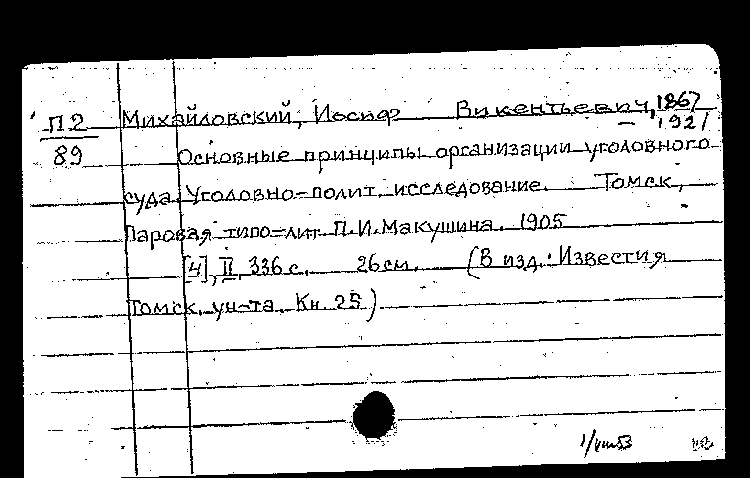 П2 Михайловский, Иосиф Викентьевич, 1867
89 – 1921
Основные принципы организации уголовного
суда. Уголовно-полит. исследование. Томск,
Паровая типо-лит. П.И. Макушина. 1905
[4], II, 336 с. 26 см. (В изд.: Известия
Томск. ун-та. Кн. 25)